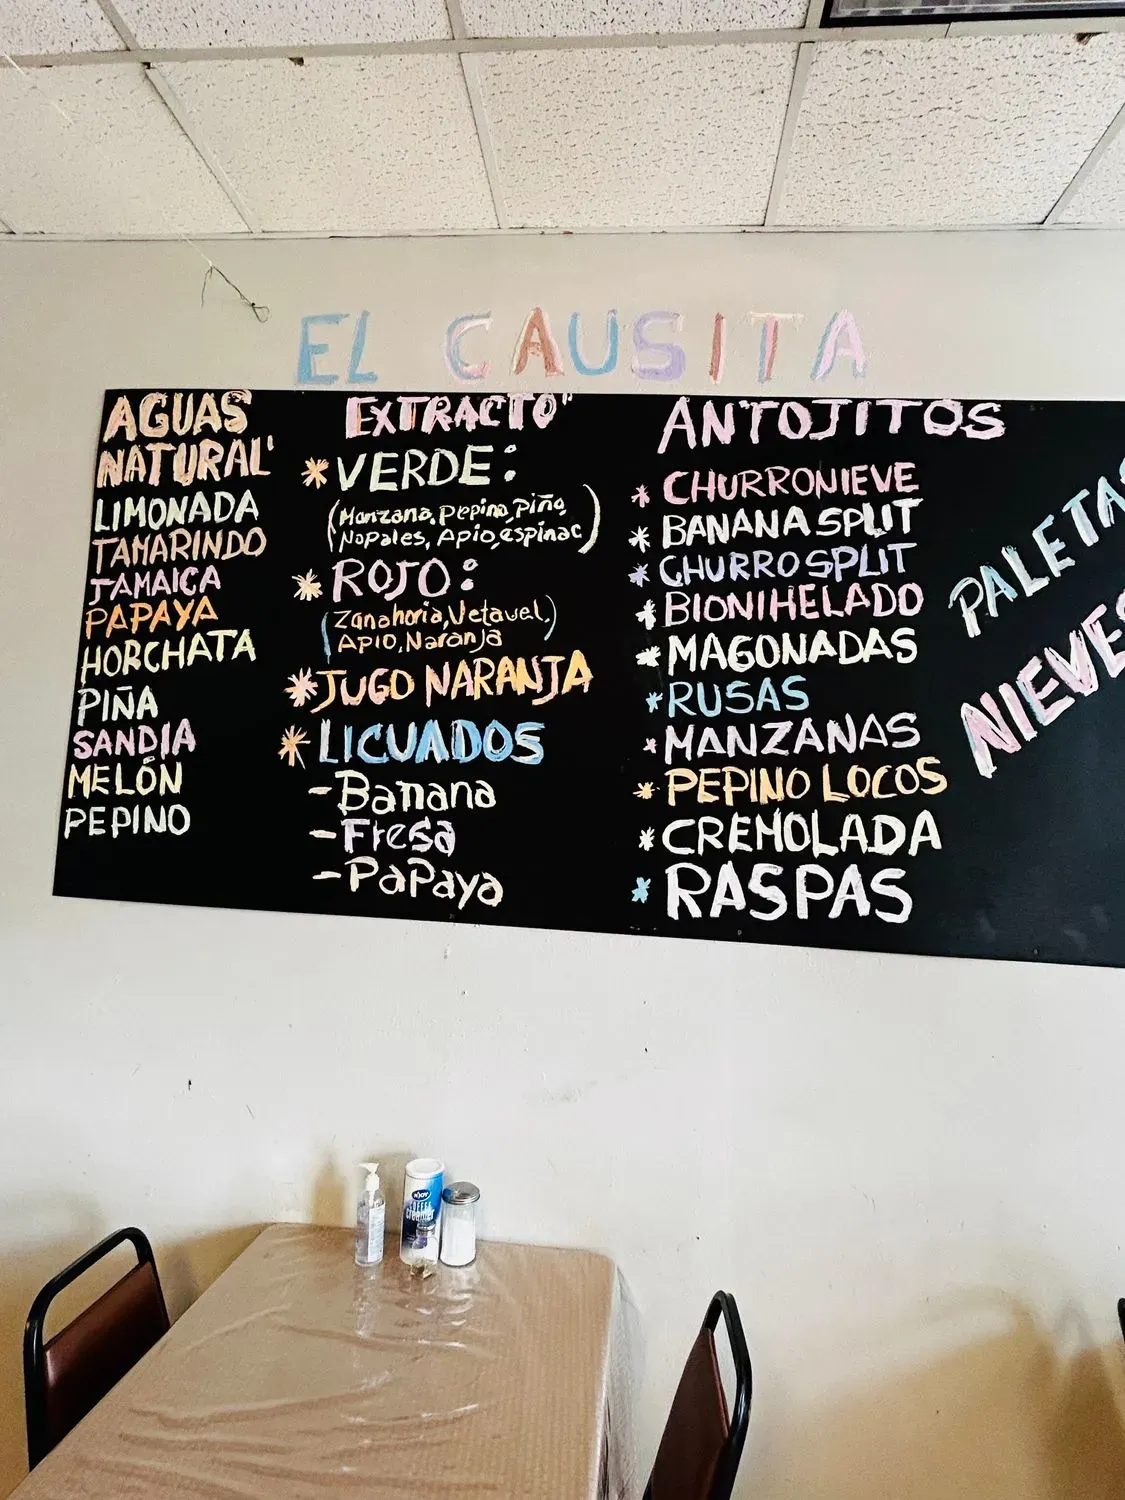 EL CAUSITA
AGUAS
NATURAL'
LIMONADA
TAMARINDO
JAMAICA
PAPAYA
HORCHATA
PIÑA
SANDIA
MELÓN
PEPINO
EXTRACTO"
* VERDE:
(Manzana, pepino, piña,
Nopales, Apio, espinac)
* ROJO:
(Zanahoria, Vetavel,)
APIO, Naranja
* JUGO NARANJA
* LICUADOS
- Banana
- Fresa
- PaPaya
ANTOJITOS
* CHURRONIEVE
* BANANA SPLIT
* CHURRO SPLIT
* BIONIHELADO
* MAGONADAS
* RUSAS
* MANZANAS
* PEPINO LOCOS
* CREMOLADA
* RASPAS
PALETAS
NIEVES
N'JOY
creamer